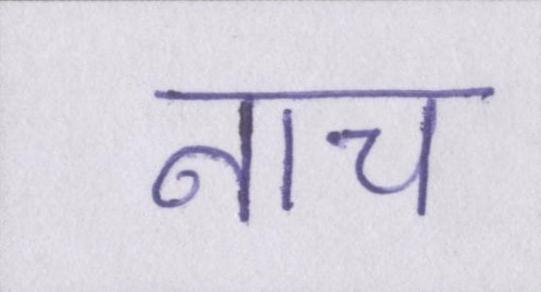 नाच